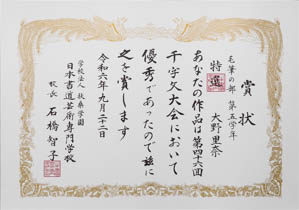 賞状
毛筆の部 第五学年
特選 大野里奈
あなたの作品は第四十六回
千字文大会において
優秀であったので茲に
之を賞します
令和六年九月二十二日
学校法人 扶桑学園
日本書道芸術専門学校
校長 石橋智子